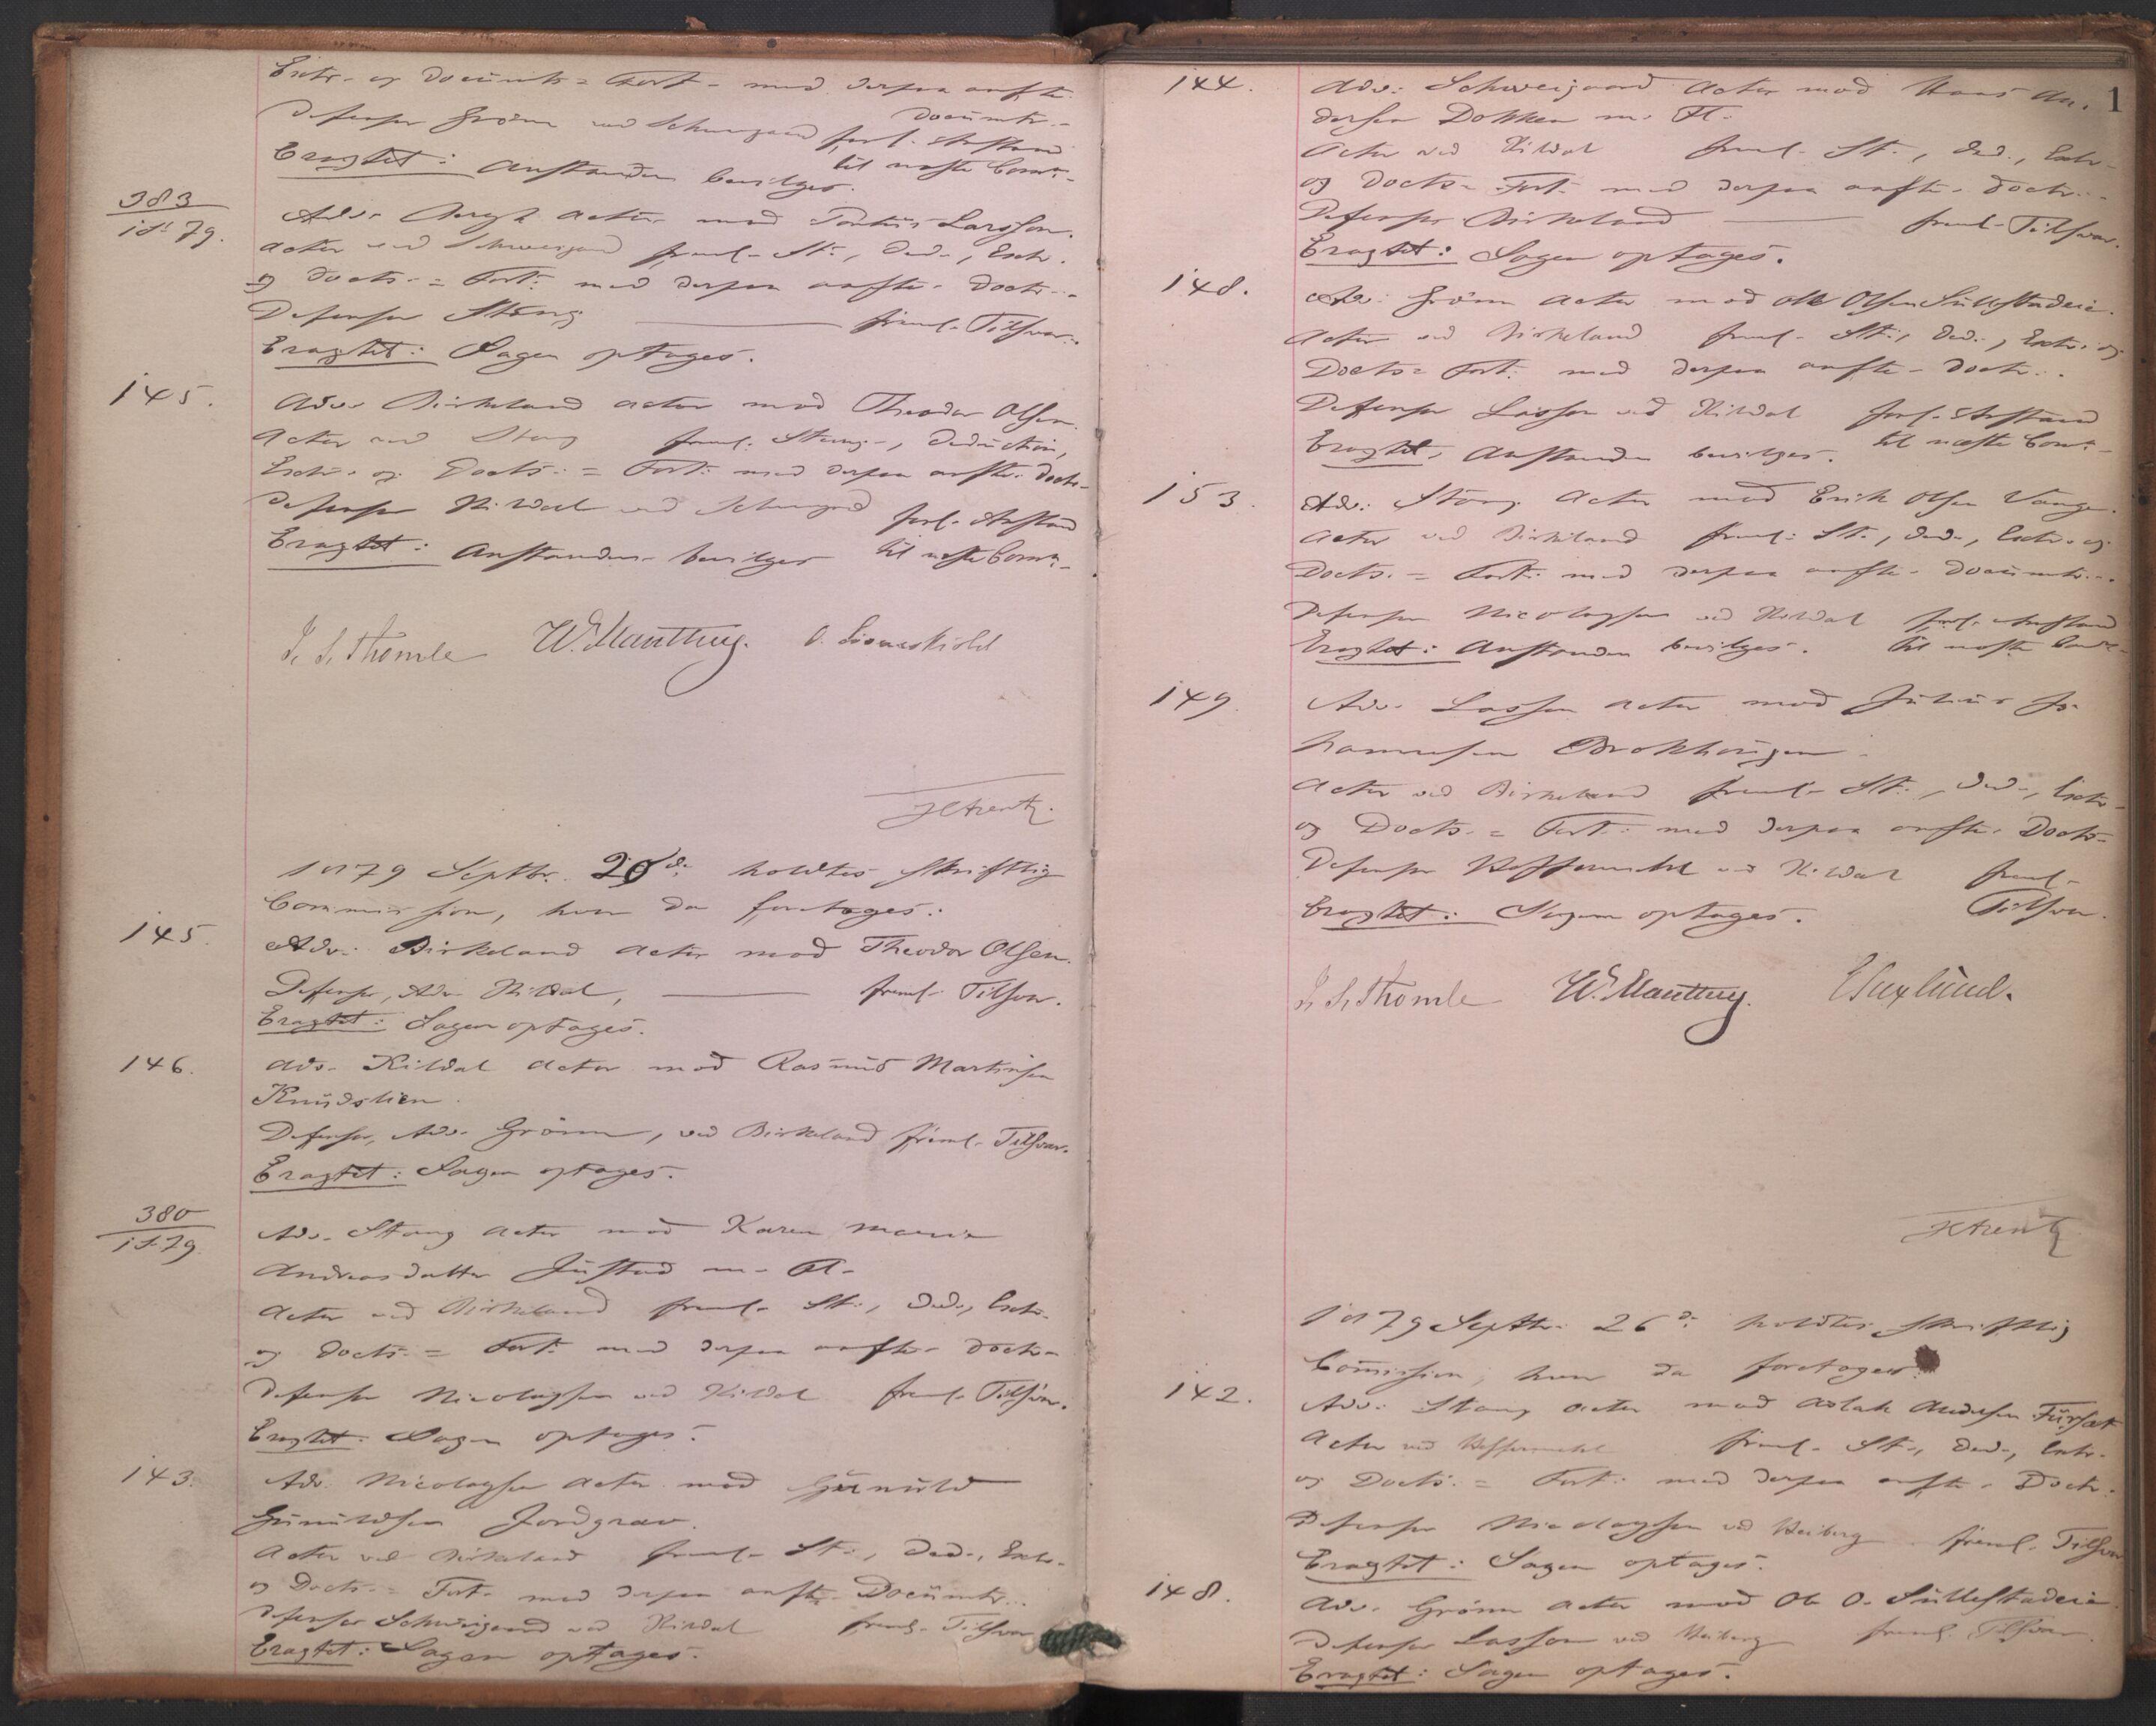 Extr- og Documts = Fort- med derpaa anfte
Documtr.-
Defensor Grönn ved Schweigaard forl- Anstand
til næste Comn-
Eragtet: Anstanden bevilges.
383
1879.
Adv. Bergh Actor mod Pontus Larsson.
Actor ved Schweigaard freml- St:, Ded-, Extr.
og Docts.- = Fort: med derpaa anfte- Doctr.-
Defensor Stang freml- Tilsvar.
Eragtet: Sagen optages.
145.
Adv. Birkeland Actor mod Theodor Olsen.
Actor ved Stang freml. Stevng-, Deduction,
Extr.- og Docts.- = Fort: med derpaa anfte. Doctr-
Defensor Kildal ved Schweigaard forl- Anstand
til næste Comn-
Eragtet: Anstanden bevilges
J. S. Thomle W. Manthey. O. Lövenskiold
HArentz.
1879 Septbr. 20de holdtes skriftlig
Commission, hvor da foretoges:
145.
Adv. Birkeland Actor mod Theodor Olsen.
Defensor, Adv. Kildal, freml- Tilsvar.
Eragtet: Sagen optages.
146.
Adv. Kildal Actor mod Rasmus Martinsen
Knudslien.
Defensor, Adv. Grönn, ved Birkeland freml- Tilsvar.
Eragtet: Sagen optages.
380
1879.
Adv. Stang Actor mod Karen Marie
Andreasdatter Justad m. Fl-
Actor ved Birkeland freml- St:, Ded-, Extr-
og Docts.- = Fort: med derpaa anfte- Doctr-
Defensor Nicolaysen ved Kildal freml- Tilsvar.
Eragtet: Sagen optages.
143.
Adv. Nicolaysen Actor mod Gunuld
Gunuldsen Jordgrav.
Actor ved Birkeland freml- St:, Ded-, Extr-
og Docts.- = Fort- med derpaa anfte- Documtr..
Defensor Schweigaard ved Kildal freml- Tilsvar
Eragtet: Sagen optages.
1
144.
Adv. Schweigaard Actor mod Hans An-
dersen Dokken m. Fl.
Actor ved Kildal freml- St:, Ded., Extr-
og Docts- Fort- med derpaa anfte- Doctr.-
Defensor Birkeland freml- Tilsvar.
Eragtet: Sagen optages.
148.
Adv. Grönn Actor mod Ole Olsen Sullestadeie.
Actor ved Birkeland freml- St:, Ded-, Extr. og
Docts= Fort: med derpaa anfte- Doctr..
Defensor Lasson ved Kildal forl- Anstand
til næste Comn-
Eragtet: Anstanden bevilges.
153.
Adv. Stang Actor mod Erik Olsen Vange.
Actor ved Birkeland freml: St:, Ded-, Extr- og
Docts.- = Fort: med derpaa anfte- Documtr..
Defensor Nicolaysen ved Kildal forl- Anstand
Eragtet: Anstanden bevilges. til næste Comn-
149.
Adv. Lasson Actor mod Julius Jo-
hannesen Brokhaugen.
Actor ved Birkeland freml- St:, Ded-, Extr-
og Docts.- = Fort: med derpaa anfte- Doctr-
Defensor ved Kildal freml-
Tilsvar.
Eragtet: Sagen optages.
J. S. Thomle W. Manthey.
HArentz
1879 Septbr. 26de holdtes skriftlig
Commission, hvor da foretoges:
142.
Adv. Stang Actor mod Aslak Andersen
Actor ved freml- St:, Ded-, Extr-
og Docts.- = Fort: med derpaa anfte- Doctr.
Defensor Nicolaysen ved Heiberg freml- Tilsvar
Eragtet: Sagen optages.
148.
Adv. Grönn Actor mod Ole O. Sullestadeie
Defensor Lasson ved Heiberg freml- Tilsvar.
Eragtet: Sagen optages.